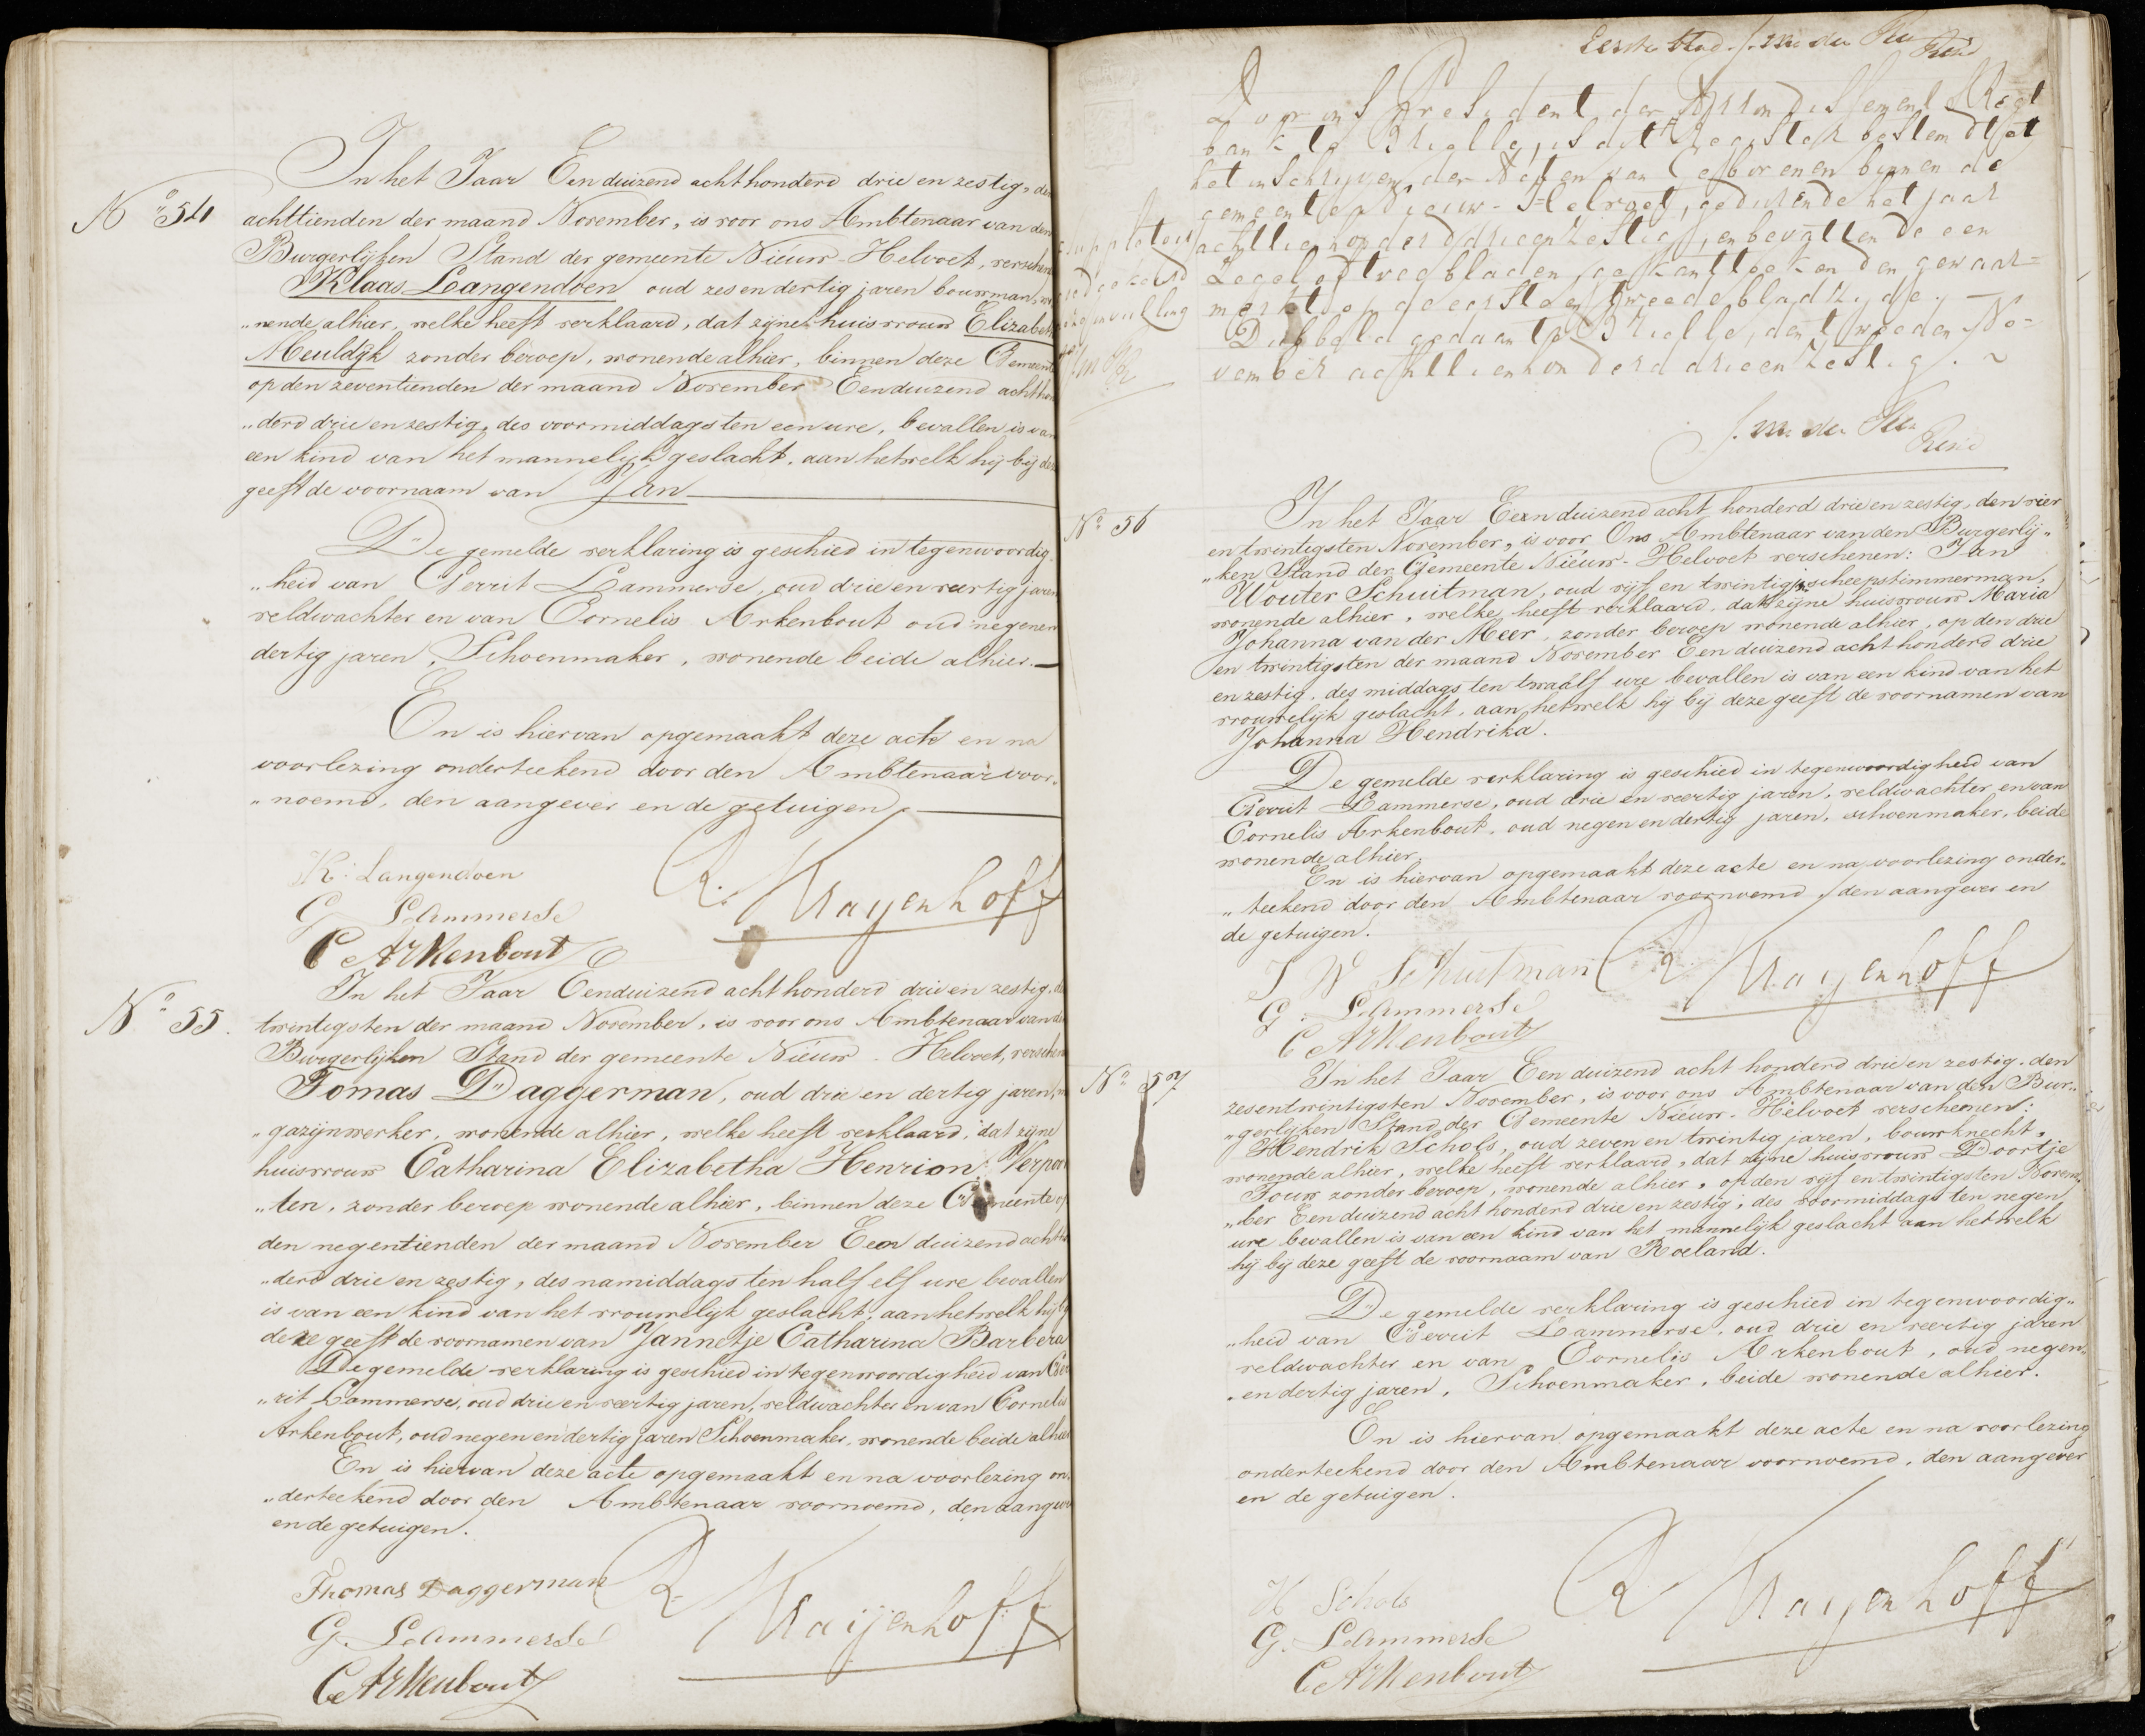 No 54
In het Jaar Een duizend acht honderd drie en zestig, den
achttienden der maand November, is voor ons Ambtenaar van den
Burgerlijken Stand der gemeente Nieuw-Helvoet, verschenen
Klaas Langendoen oud zes en dertig jaren bouwman, wo
"nende alhier, welke heeft verklaard, dat zijne huisvrouw Elizabeth
Meuldijk zonder beroep, wonende alhier, binnen deze Gemeente
op den zeventienden der maand November Een duizend acht hon
"derd drie en zestig, des voormiddags ten een ure, bevallen is van
een kind van het mannelijk geslacht, aan hetwelk hij bij deze
geeft de voornaam van Jan
De gemelde verklaring is geschied in tegenwoordig
"heid van Gerrit Lammerse, oud drie en veertig jaren
veldwachter en van Cornelis Arkenbout oud negenen
dertig jaren, Schoenmaker, wonende beide alhier.
En is hiervan opgemaakt deze acte en na
voorlezing onderteekend door den Ambtenaar voor"
"noemd, den aangever en de getuigen.
K. Langendoen
G Lammerse
C Arkenbout
R. Kraijenhoff
No 55.
In het Jaar Eenduizend acht honderd drie en zestig, de
twintigsten der maand November, is voor ons Ambtenaar van de
Burgerlijken Stand der gemeente Nieuw-Helvoet, verschen
Tomas Daggerman, oud drie en dertig jaren, m
"gazijnwerker, wonende alhier, welke heeft verklaard, dat zijne
huisvrouw Catharina Elizabetha Henrion Verpoor
"ten, zonder beroep wonende alhier, binnen deze Gemeente op
den negentienden der maand November Een duizend acht h
"derd drie en zestig, des namiddags ten half elf ure bevallen
is van een kind van het vrouwelijk geslacht, aan hetwelk hij b
deze geeft de voornamen van Jannetje Catharina Barbera
De gemelde verklaring is geschied in tegenwoordigheid van Ger
"rit Lammerse, oud drie en veertig jaren, veldwachter en van Cornelis
Arkenbout, oud negen en dertig jaren Schoenmaker, wonende beide alhier
En is hiervan deze acte opgemaakt en na voorlezing on
"derteekend door den Ambtenaar voornoemd, den aangever
en de getuigen.
Thomas Daggerman
G. Lammerse
C Arkenbout
R. Kraijenhoff
Eerste blad
Door ons President der Arrondissements Regt
bank te Brielle, is dit Register bestemd tot
het inschrijven der Akten van Geborenen binnen de
gemeente Nieuw-Helvoet, gedurende het jaar
achttienhonderd drieenzestig, en bevattende een
zegel of twee bladen
merkt op de eerste en tweede bladzijde.
Dubbeld gedaan te Brielle, den tweeden No=
vember achttienhonderd drieenzestig.
No 56
In het Jaar Een duizend acht honderd drie en zestig, den vier
en twintigsten November, is voor Ons Ambtenaar van den Burgerlij"
"ken Stand der Gemeente Nieuw-Helvoet verschenen: Jan
Wouter Schuitman, oud vijf en twintig j. scheepstimmerman,
wonende alhier, welke heeft verklaard, dat zijne huisvrouw Maria
Johanna van der Meer, zonder beroep wonende alhier, op den drie
en twintigsten der maand November Een duizend acht honderd drie
en zestig, des middags ten twaalf ure bevallen is van een kind van het
vrouwelijk geslacht, aan hetwelk hij bij deze geeft de voornamen van
Johanna Hendrika.
De gemelde verklaring is geschied in tegenwoordigheid van
Gerrit Lammerse, oud drie en veertig jaren, veldwachter, en van
Cornelis Arkenbout, oud negen en dertig jaren, schoenmaker, beide
wonende alhier.
En is hiervan opgemaakt deze acte en na voorlezing onder"
"teekend door den Ambtenaar voornoemd, den aangever en
de getuigen.
J W Schuitman
G. Lammerse
C Arkenbout
R Kraijenhoff
No 57
In het Jaar Een duizend acht honderd drie en zestig, den
zesentwintigsten November, is voor ons Ambtenaar van den Bur"
"gerlijken Stand der Gemeente Nieuw-Helvoet verschenen:
Hendrik Schols, oud zeven en twintig jaren, bouwknecht,
wonende alhier, welke heeft verklaard, dat zijne huisvrouw Doortje
Touw zonder beroep, wonende alhier, op den vijf en twintigsten Novem"
"ber Een duizend acht honderd drie en zestig, des voormiddags ten negen
ure bevallen is van een kind van het mannelijk geslacht aan hetwelk
hij bij deze geeft de voornaam van Roeland.
De gemelde verklaring is geschied in tegenwoordig"
"heid van Gerrit Lammerse, oud drie en veertig jaren
veldwachter en van Cornelis Arkenbout, oud negen"
"en dertig jaren, Schoenmaker, beide wonende alhier.
En is hiervan opgemaakt deze acte en na voorlezing
onderteekend door den Ambtenaar voornoemd, den aangever
en de getuigen.
H Schols
G. Lammerse
C Arkenbout
R Kraijenhoff